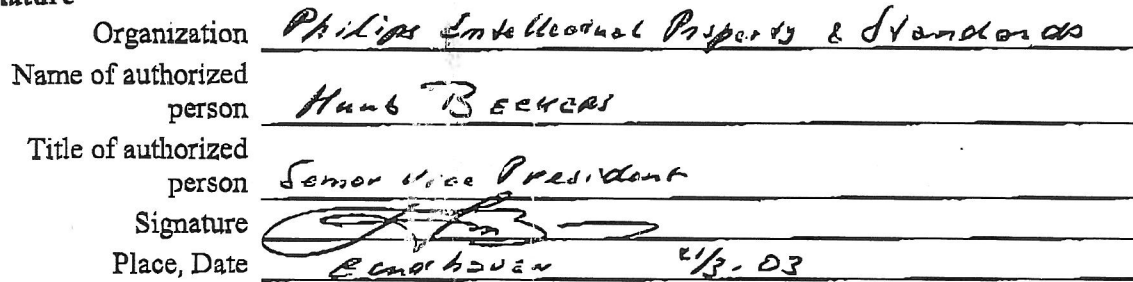 Organization Philips Intellectual Property & Standards
Name of authorized
person Huub BEEKERS
Title of authorized
person Senior Vice President
Signature
Place, Date Eindhoven 21/3-03